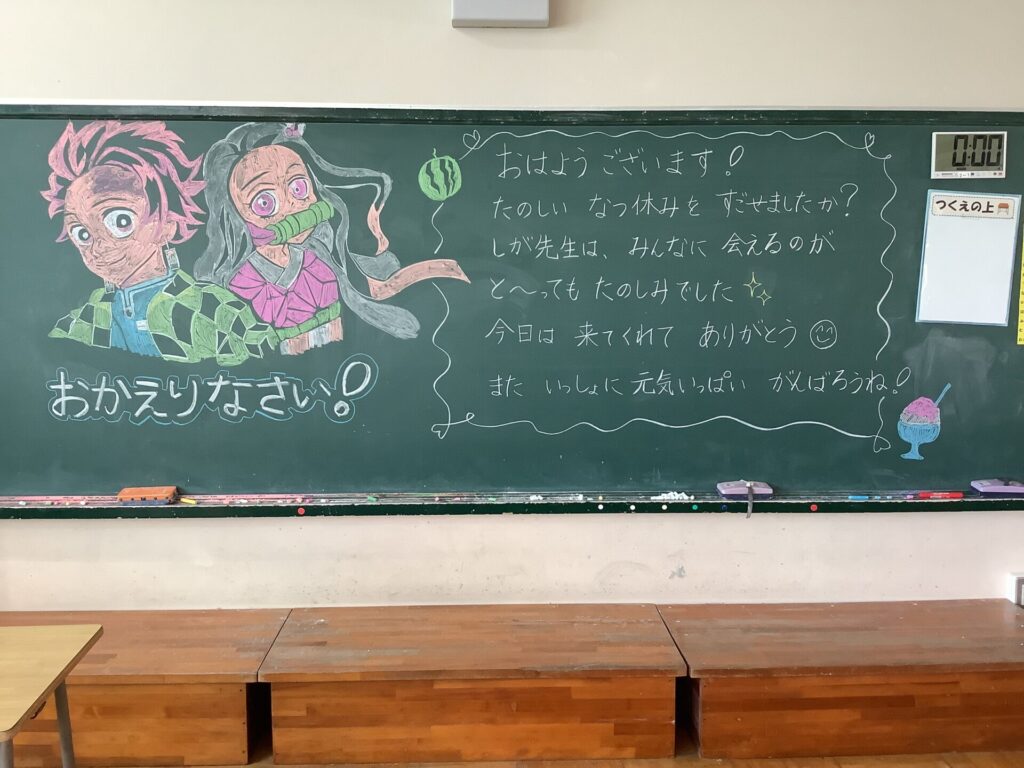 おはようございます!
たのしい なつ休みを すごせましたか?
しが先生は、みんなに 会えるのが
と〜っても たのしみでした
今日は 来てくれて ありがとう
また いっしょに 元気いっぱい がんばろうね!
おかえりなさい!
0:00
つくえの上